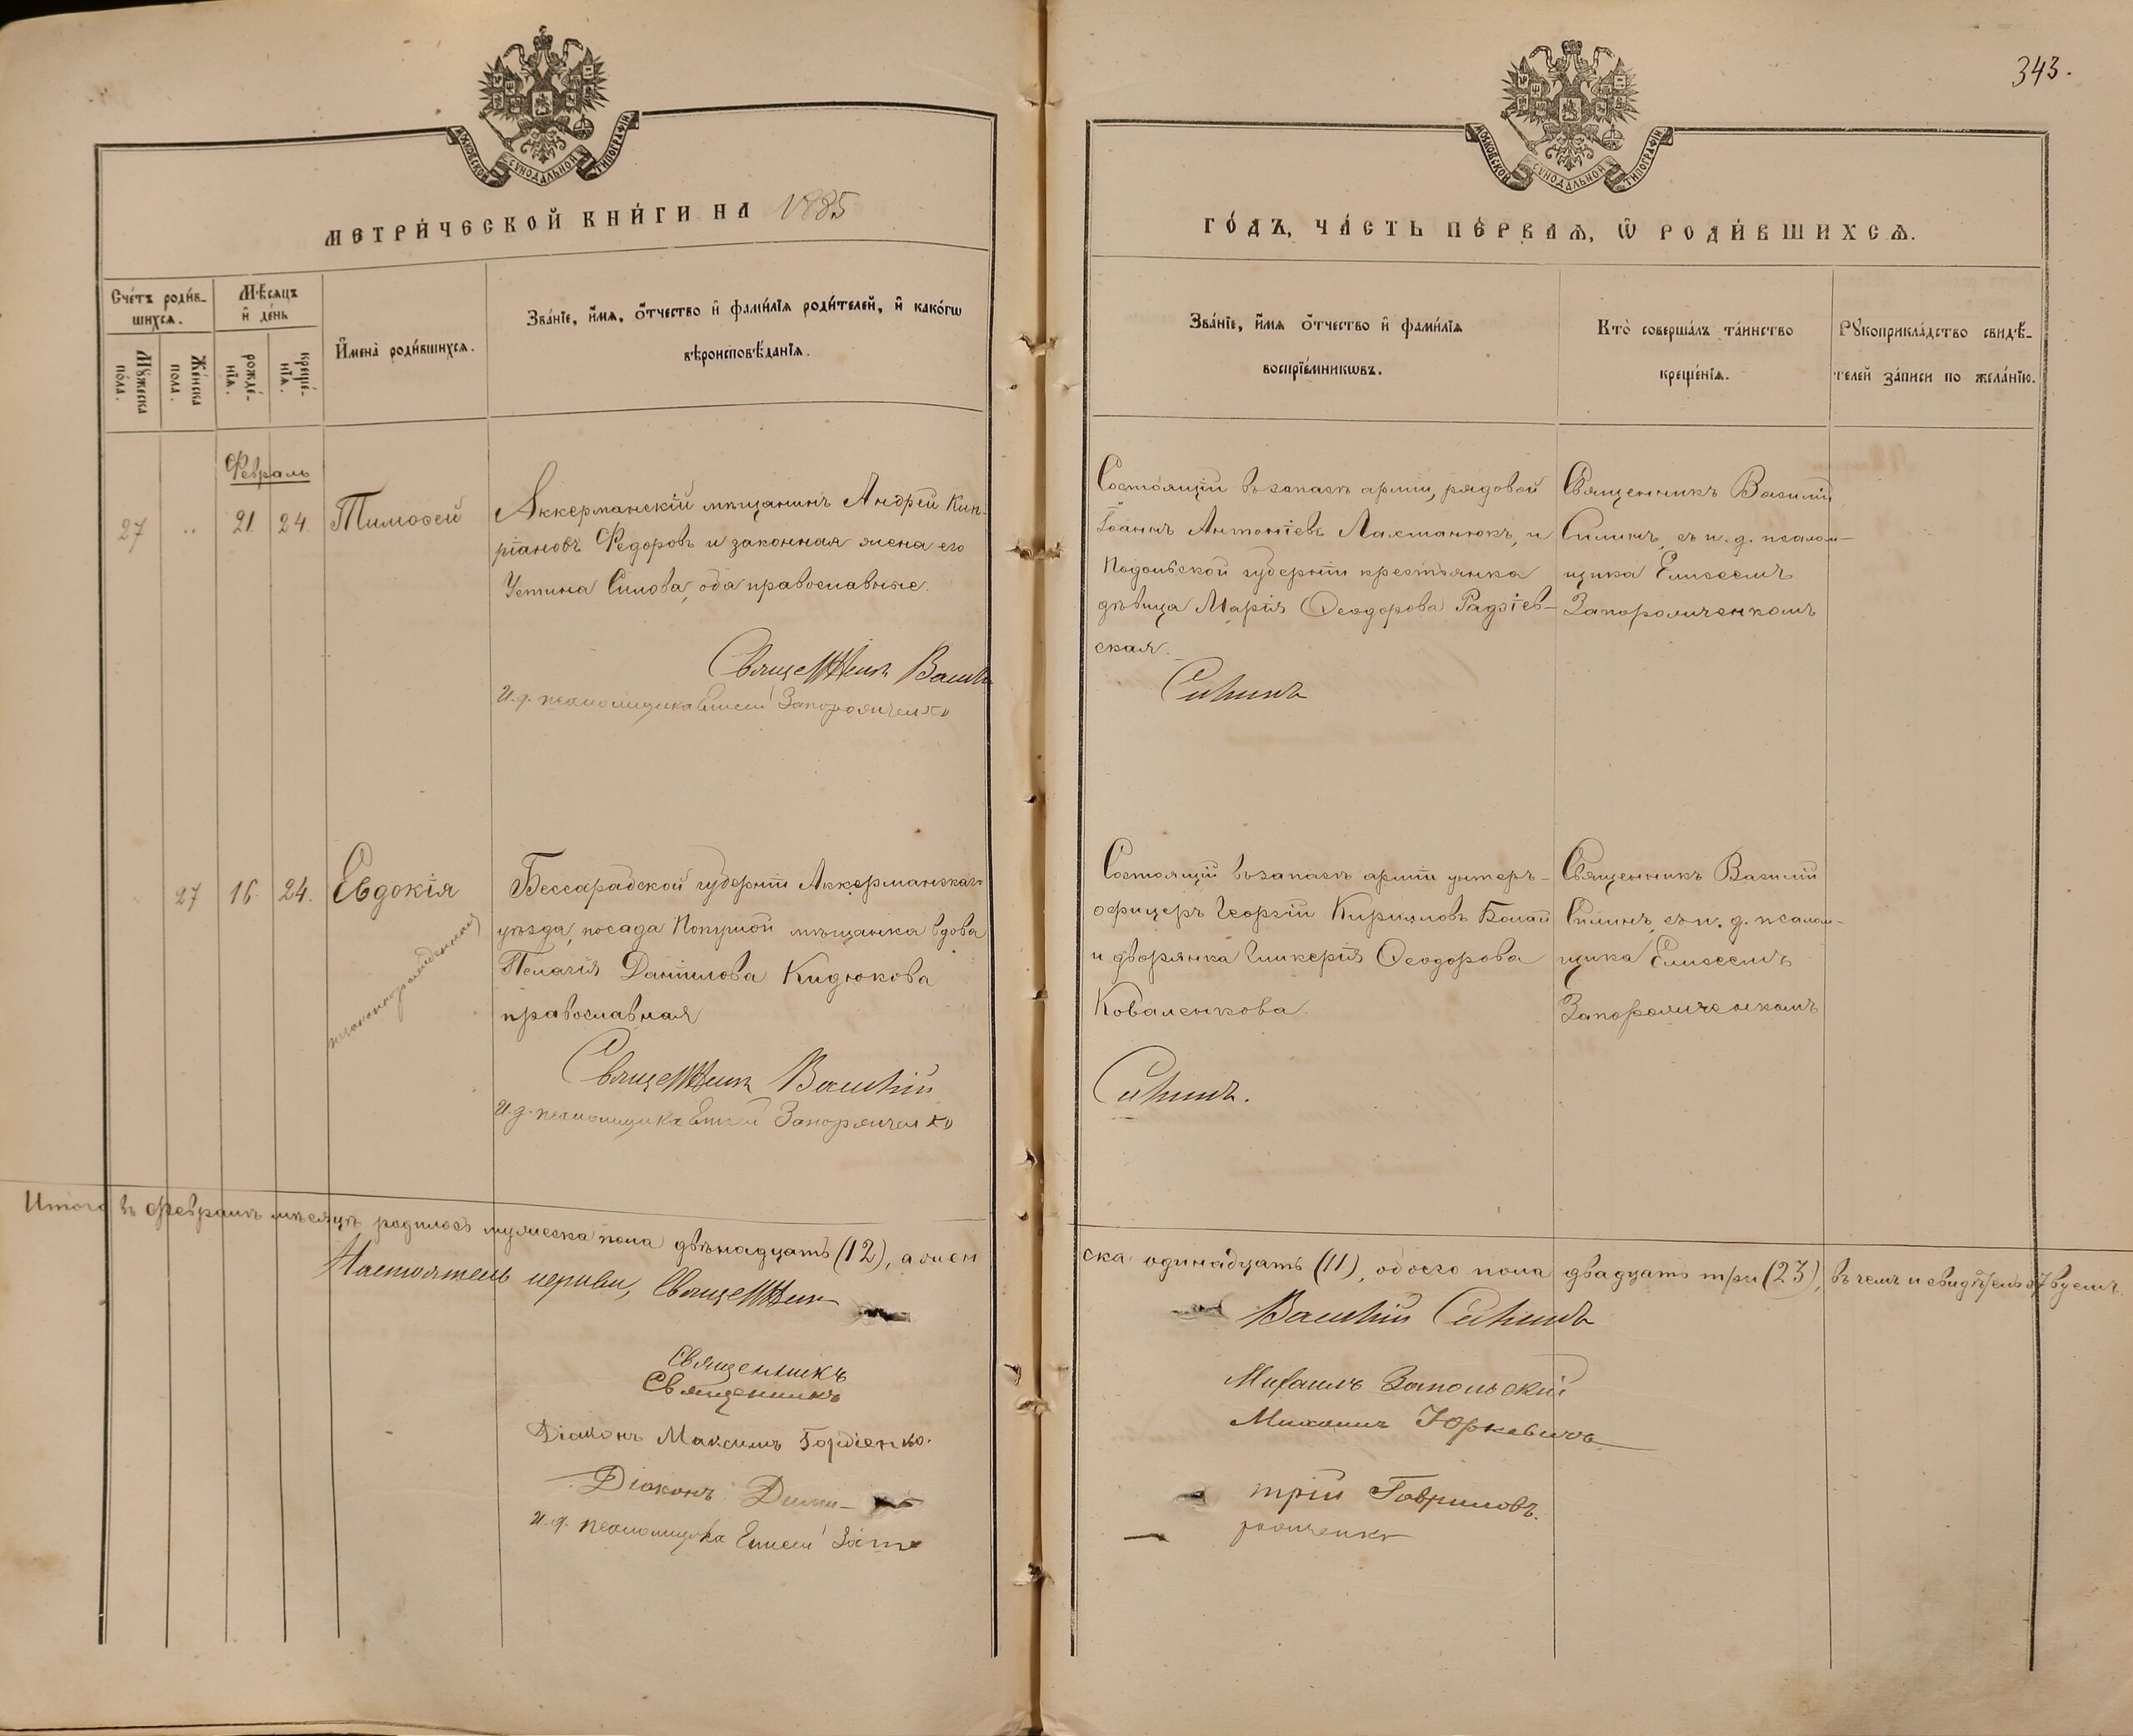 343.
МОСКОВСКОЙ СѴНОДАЛЬНОЙ ТИПОГРАФІИ
МОСКОВСКОЙ СѴНОДАЛЬНОЙ ТИПОГРАФІИ
МЕТРИ́ЧЕСКОЙ КНИ́ГИ НА 1885
ГО́ДЪ, ЧА́СТЬ ПЕ́РВАѦ, Ѡ҆ РОДИ́ВШИХСѦ.
Сче́тъ роди́в-
шихсѧ.
Мѣ́сѧцъ
и҆ де́нь
Мꙋ́жеска
по́ла.
Же́нска
пола.
рожде́-
нїѧ.
креще́-
нїѧ.
И҆мена̀ роди́вшихсѧ.
Зва́нїе, и҆́мѧ, ѻ҆́тчество и҆ фами́лїѧ роди́телей, и҆ како́гѡ
вѣроисповѣ́данїѧ.
Зва́нїе, и҆́мѧ ѻ҆́тчество и҆ фами́лїѧ
воспрїе́мникѡвъ.
Кто̀ соверша́лъ та́инство
креще́нїѧ.
Рꙋкоприкла́дство свидѣ́-
телей за́писи по жела́нїю.
Февраль
27 .. 21 24. Тимоѳей
Аккерманскій мѣщанинъ Андрей Кип-
ріановъ Федоровъ и законная жена его
Устина Силова, оба православные.
Священникъ Василій
И.д. псаломщика Елисей Запорожченко
Состоящій въ запасѣ арміи, рядовой
Іоаннъ Антоніевъ Лахманюкъ, и
Подольской губерніи крестьянка
дѣвица Марія Ѳеодорова Радзіев-
ская.
Силинъ
Священникъ Василій
Силинъ, съ и. д. псалом-
щика Елисеемъ
Запорожченкомъ
27 16. 24. Евдокія
незаконнорожденная
Бессарабской губерніи Аккерманскаго
уѣзда, посада Папушой мѣщанка вдова
Пелагія Даніилова Кидюкова
православная
Священникъ Василій
И.д. псаломщика Елисей Запорожченко
Состоящій въ запасѣ арміи унтеръ-
офицеръ Георгій Кирилловъ Балай
и дворянка Гликерія Ѳеодорова
Коваленкова
Силинъ.
Священникъ Василій
Силинъ, съ и. д. псалом-
щика Елисеемъ
Запорожченкомъ
Итого въ февралѣ мѣсяцѣ родилось мужеска пола двѣнадцать (12), а жен
ска одинадцать (11), обоего пола двадцать три (23), въ чемъ и свидѣтельствуемъ.
Настоятель церкви, Священникъ
Василій Силинъ
Священникъ
Михаилъ Запольскій
Священникъ
Михаилъ Юркевичъ
Діаконъ Максимъ Гордіенко.
Діаконъ Дими-
трій Гавриловъ.
и.д. псаломщика Елисей Запо
рожченко